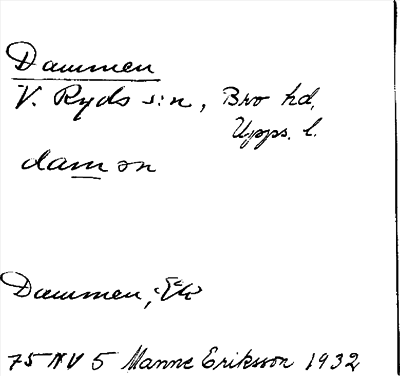 Dammen
V. Ryds s:n, Bro hd,
Upps. l.
damən
Dammen,
75 NV 5 Manne Eriksson 1932